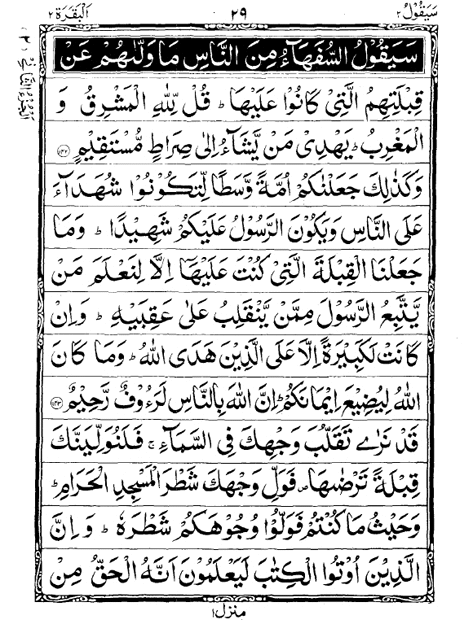 سَيَقُوْلُ ٢
٢٩
اَلْبَقَرَة ٢
سَيَقُوْلُ السُّفَهَآءُ مِنَ النَّاسِ مَا وَلّٰىهُمْ عَنْ
قِبْلَتِهِمُ الَّتِيْ كَانُوْا عَلَيْهَا ؕ قُلْ لِّلّٰهِ الْمَشْرِقُ وَ
الْمَغْرِبُ ؕ يَهْدِيْ مَنْ يَّشَآءُ اِلٰى صِرَاطٍ مُّسْتَقِيْمٍ ﴿۱۴۲﴾
وَكَذٰلِكَ جَعَلْنٰكُمْ اُمَّةً وَّسَطًا لِّتَكُوْنُوْا شُهَدَآءَ
عَلَى النَّاسِ وَيَكُوْنَ الرَّسُوْلُ عَلَيْكُمْ شَهِيْدًا ؕ وَمَا
جَعَلْنَا الْقِبْلَةَ الَّتِيْ كُنْتَ عَلَيْهَاۤ اِلَّا لِنَعْلَمَ مَنْ
يَّتَّبِعُ الرَّسُوْلَ مِمَّنْ يَّنْقَلِبُ عَلٰى عَقِبَيْهِ ؕ وَاِنْ
كَانَتْ لَكَبِيْرَةً اِلَّا عَلَى الَّذِيْنَ هَدَى اللّٰهُ ؕ وَمَا كَانَ
اللّٰهُ لِيُضِيْعَ اِيْمَانَكُمْ ؕ اِنَّ اللّٰهَ بِالنَّاسِ لَرَءُوْفٌ رَّحِيْمٌ ﴿۱۴۳﴾
قَدْ نَرٰى تَقَلُّبَ وَجْهِكَ فِي السَّمَآءِ ۚ فَلَنُوَلِّيَنَّكَ
قِبْلَةً تَرْضٰىهَا ۪ فَوَلِّ وَجْهَكَ شَطْرَ الْمَسْجِدِ الْحَرَامِ ؕ
وَحَيْثُ مَا كُنْتُمْ فَوَلُّوْا وُجُوْهَكُمْ شَطْرَهٗ ؕ وَاِنَّ
الَّذِيْنَ اُوْتُوا الْكِتٰبَ لَيَعْلَمُوْنَ اَنَّهُ الْحَقُّ مِنْ
منزل ١